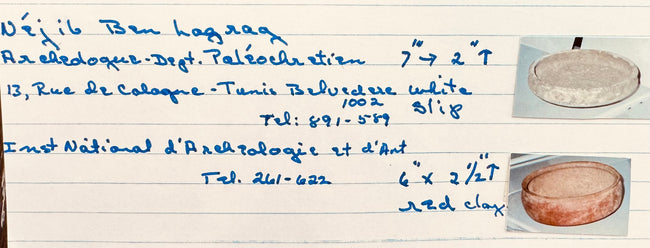 Néjib Ben Lagrag
Archéologue-Dept. Paléochretien 7" → 2" ↑
13, Rue de Cologne - Tunis Belvedere white
1002 slip
Tel: 891-589
Inst National d'Archeologie et d'Art
Tel. 261-622 6" x 2 1/2" ↑
red clay